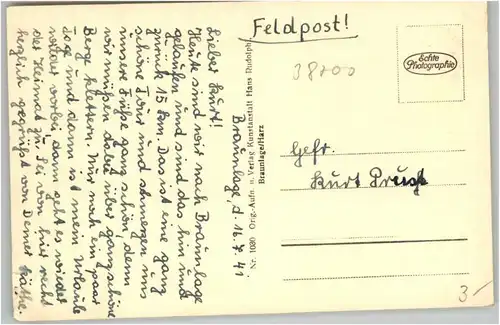 Lieber Kurt!
Heute sind wir nach Braunlage
gelaufen und sind das hin und
zurück 15 km. Das ist eine ganz
schöne Tour und schmerzen uns
unsere Füße ganz schön, denn
wir müßen dabei über ganz schöne
Berge klettern. Nur noch ein paar
Tage und dann ist mein Urlaub
wieder vorbei, dann geht es wieder
der Heimat zu. Sei von hier recht
herzlich gegrüßt von Deiner Käthe.
Braunlage, d. 16.7.41
Nr. 1030 Orig.-Aufn. u. Verlag Kunstanstalt Hans Rudolph,
Braunlage/Harz
Feldpost!
38200
Echte
Photographie
Gefr.
Kurt
3.-